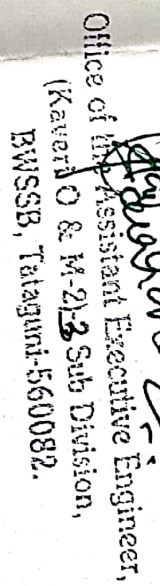 Office of the Assistant Executive Engineer,
(Kaveri O & M-2)-3 Sub Division,
BWSSB, Tataguni-560082.